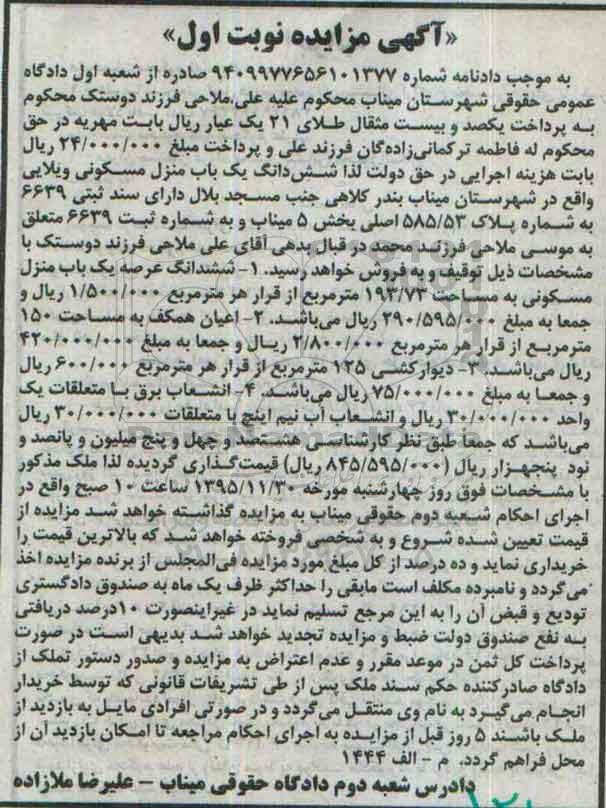 «آگهی مزایده نوبت اول»
به موجب دادنامه شماره ۹۴۰۹۹۷۷۶۵۶۱۰۱۳۷۷ صادره از شعبه اول دادگاه
عمومی حقوقی شهرستان میناب محکوم علیه علی.ملاحی فرزند دوستک محکوم
به پرداخت یکصد و بیست مثقال طلای ۲۱ یک عیار ریال بابت مهریه در حق
محکوم له فاطمه ترکمانی‌زاده‌گان فرزند علی و پرداخت مبلغ ۲۴/۰۰۰/۰۰۰ ریال
بابت هزینه اجرایی در حق دولت لذا شش‌دانگ یک باب منزل مسکونی ویلایی
واقع در شهرستان میناب بندر کلاهی جنب مسجد بلال دارای سند ثبتی ۶۶۳۹
به شماره پلاک ۵۸۵/۵۳ اصلی بخش ۵ میناب و به شماره ثبت ۶۶۳۹ متعلق
به موسی ملاحی فرزند محمد در قبال بدهی آقای علی ملاحی فرزند دوستک با
مشخصات ذیل توقیف و به فروش خواهد رسید. ۱- ششدانگ عرصه یک باب منزل
مسکونی به مساحت ۱۹۳/۷۳ مترمربع از قرار هر مترمربع ۱/۵۰۰/۰۰۰ ریال و
جمعا به مبلغ ۲۹۰/۵۹۵/۰۰۰ ریال می‌باشد. ۲- اعیان همکف به مساحت ۱۵۰
مترمربع از قرار هر مترمربع ۲/۸۰۰/۰۰۰ ریال و جمعا به مبلغ ۴۲۰/۰۰۰/۰۰۰
ریال می‌باشد. ۳- دیوارکشی ۱۲۵ مترمربع از قرار هر مترمربع ۶۰۰/۰۰۰ ریال
و جمعا به مبلغ ۷۵/۰۰۰/۰۰۰ ریال می‌باشد. ۴- انشعاب برق با متعلقات یک
واحد ۳۰/۰۰۰/۰۰۰ ریال و انشعاب آب نیم اینچ با متعلقات ۳۰/۰۰۰/۰۰۰ ریال
می‌باشد که جمعا طبق نظر کارشناسی هشتصد و چهل و پنج میلیون و پانصد و
نود پنجهزار ریال (۸۴۵/۵۹۵/۰۰۰ ریال) قیمت‌گذاری گردیده لذا ملک مذکور
با مشخصات فوق روز چهارشنبه مورخه ۱۳۹۵/۱۱/۳۰ ساعت ۱۰ صبح واقع در
اجرای احکام شعبه دوم حقوقی میناب به مزایده گذاشته خواهد شد مزایده از
قیمت تعیین شده شروع و به شخصی فروخته خواهد شد که بالاترین قیمت را
خریداری نماید و ده درصد از کل مبلغ مورد مزایده فی‌المجلس از برنده مزایده اخذ
می‌گردد و نامبرده مکلف است مابقی را حداکثر ظرف یک ماه به صندوق دادگستری
تودیع و قبض آن را به این مرجع تسلیم نماید در غیراینصورت ۱۰درصد دریافتی
به نفع صندوق دولت ضبط و مزایده تجدید خواهد شد بدیهی است در صورت
پرداخت کل ثمن در موعد مقرر و عدم اعتراض به مزایده و صدور دستور تملک از
دادگاه صادرکننده حکم سند ملک پس از طی تشریفات قانونی که توسط خریدار
انجام می‌گیرد به نام وی منتقل می‌گردد و در صورتی افرادی مایل به بازدید از
ملک باشند ۵ روز قبل از مزایده به اجرای احکام مراجعه تا امکان بازدید آن از
محل فراهم گردد. م - الف ۱۴۴۴
دادرس شعبه دوم دادگاه حقوقی میناب – علیرضا ملازاده